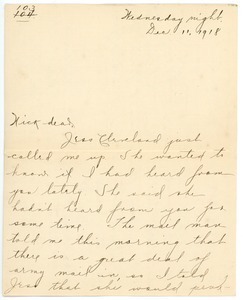 Wednesday night,
Dec 11, 1918
Nick dear,
Jess Cleveland just
called me up. She wanted to
know if I had heard from
you lately. She said she
hadn't heard from you for
some time. The mail man
told me this morning that
there is a great deal of
army mail in, so I told
Jess that she would prob-